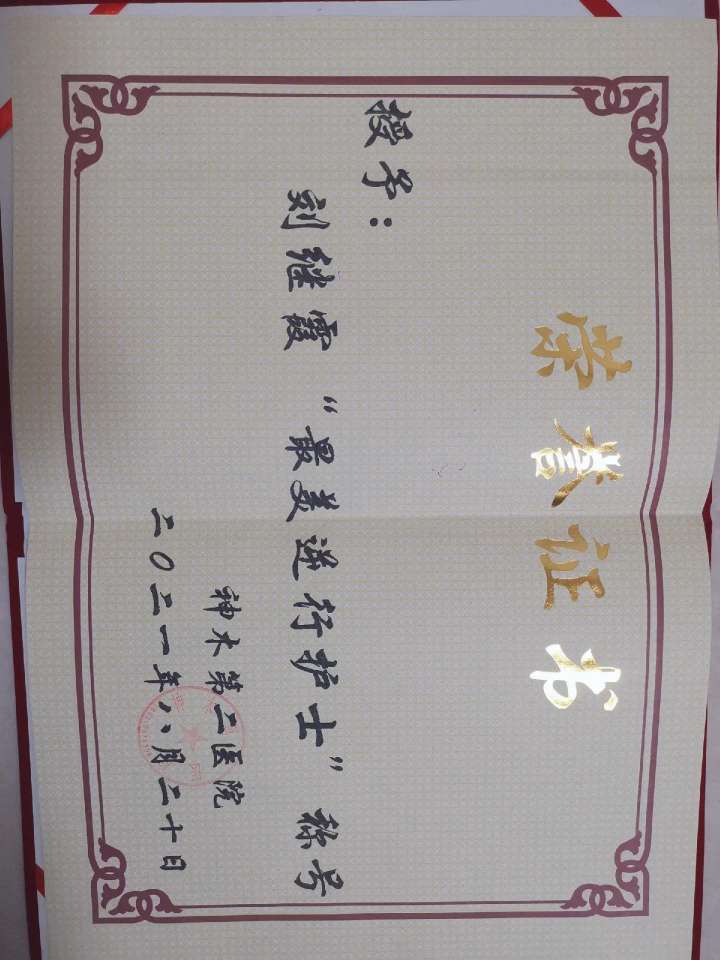 荣誉证书
授予：
刘继霞 “最美逆行护士” 称号
神木第二医院
二〇二一年八月二十日